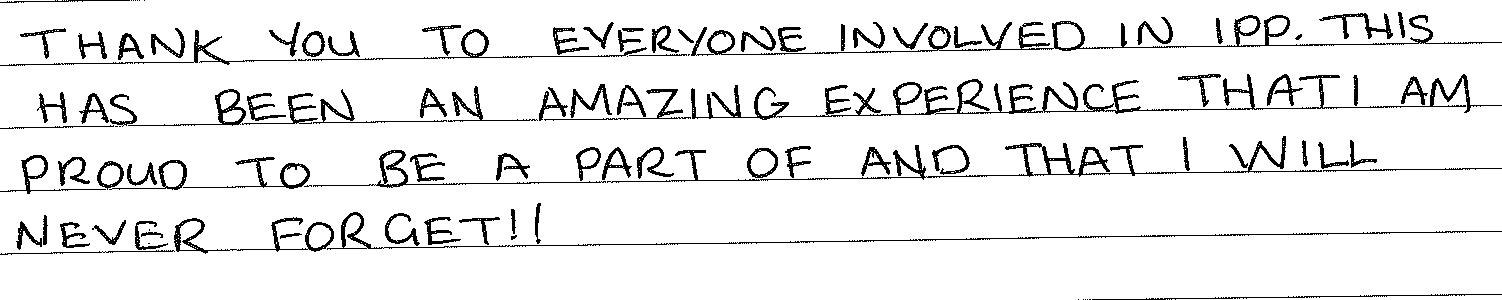 THANK YOU TO EVERYONE INVOLVED IN IPP. THIS
HAS BEEN AN AMAZING EXPERIENCE THAT I AM
PROUD TO BE A PART OF AND THAT I WILL
NEVER FORGET!!